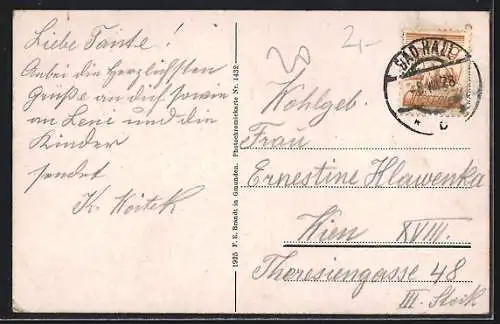 Liebe Tante!
Anbei die herzlichsten
Grüße an dich sowie
an Leni und die
Kinder
sendet
K. Woitek
1925 F. E. Brandt in Gmunden. Photochromiekarte Nr. 1432
20
2,-
BAD HALL
Wohlgeb.
Frau
Ernestine Hlawenka
Wien XVIII.
Theresiengasse 48
III. Stock